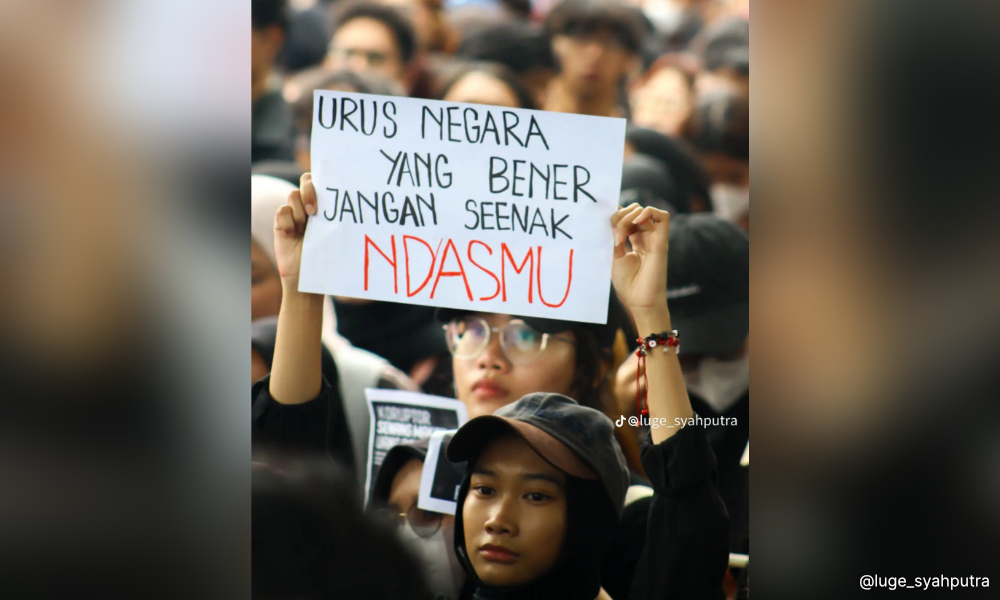 URUS NEGARA
YANG BENER
JANGAN SEENAK
NDASMU
KORUPTOR
@luge_syahputra
@luge_syahputra